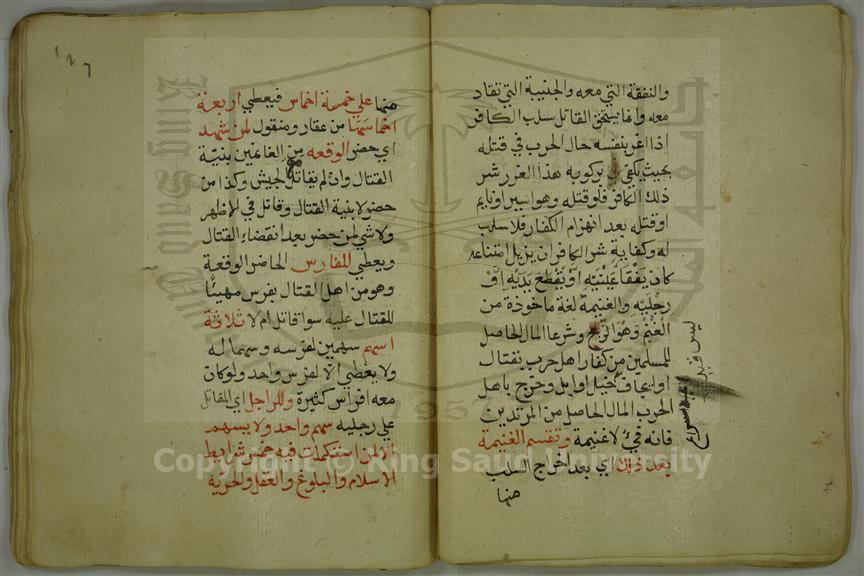 والنفقة التي معه والجنيبة التي تقاد
معه وانما يستحق القاتل سلب الكافر
اذا اغر بنفسه حال الحرب في قتله
بحيث يكفي بركوبه هذا الغرر شر
ذلك الكافر فلو قتله وهو اسير او نايم
او قتله بعد انهزام الكفار فلا سلب
له وكفاية شر الكافر ان يزيل امتناعه
كان يفقا عينيه او يقطع يديه او
رجليه والغنيمة لغة ماخوذة من
الغنم وهو الربح وشرعا المال الحاصل
للمسلمين من كفار اهل حرب بقتال
او ايجاف خيل او ابل وخرج باهل
الحرب المال الحاصل من المرتدين
فانه فيء لا غنيمة وتقسم الغنيمة
بعد ذلك اي بعد اخراج السلب
منها
١٢٦
منها علي خمسة اخماس فيعطي اربعة
اخماسها من عقار ومنقول لمن شهد
اي حضر الوقعه من الغانمين بنية
القتال وان لم يقاتل مع الجيش وكذا من
حضر لا بنية القتال وقاتل في الاظهر
ولا شي لمن حضر بعد انقضاء القتال
ويعطي للفارس الحاضر الوقعة
وهو من اهل القتال بفرس مهيئا
للقتال عليه سوا قاتل ام لا ثلاثة
اسهم سهمين لفرسه وسهما له
ولا يعطي الا لفرس واحد ولو كان
معه افراس كثيرة وللراجل اي المقاتل
علي رجليه سهم واحد ولا يسهم
الا لمن استكملت فيه خمس شرايط
الاسلام والبلوغ والعقل والحرية
King Saud University
1957
Copyright © King Saud University